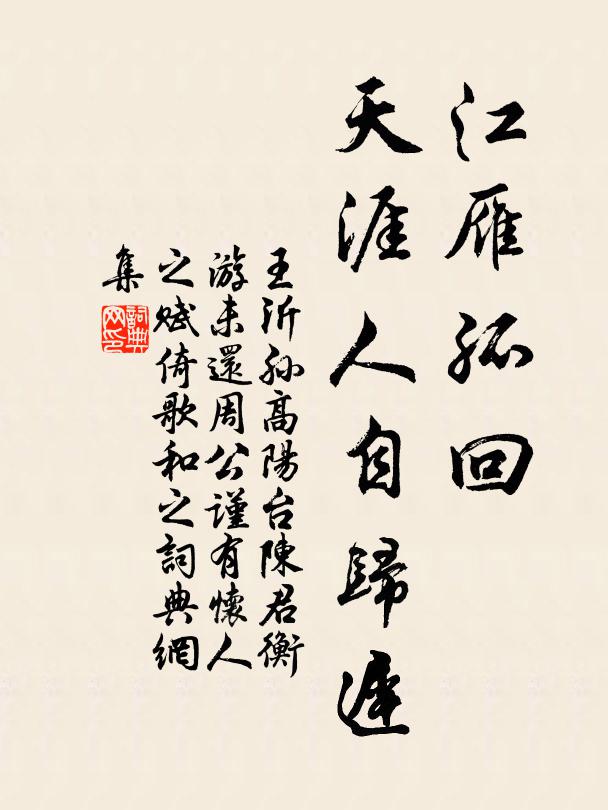 江雁孤回
天涯人自歸遲
王沂孙高陽台陳君衡
游未還周公謹有懷人
之賦倚歌和之詞典網
集
詞典
网印